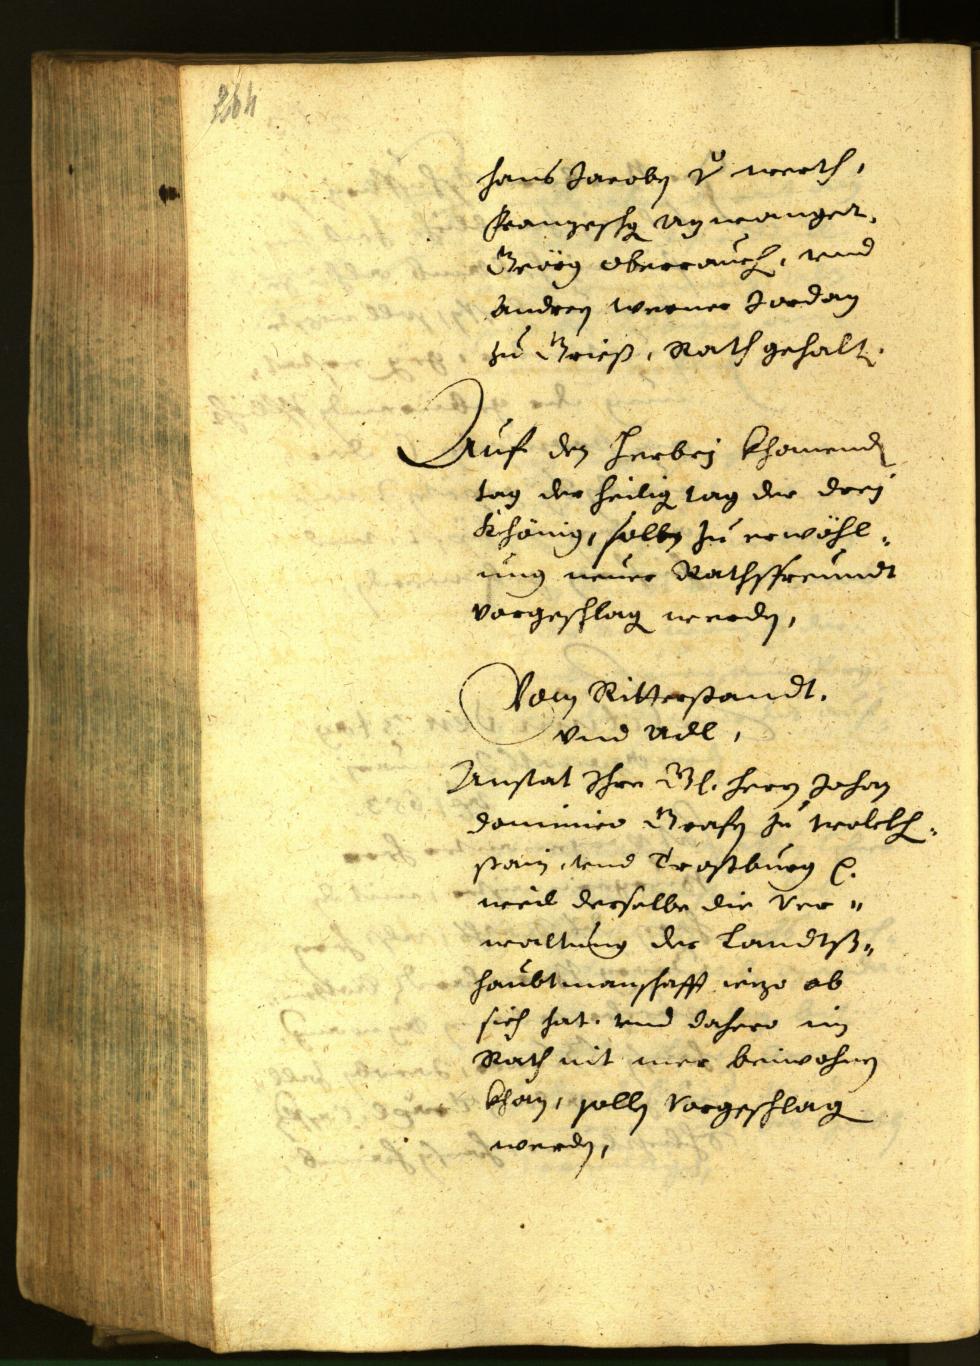 264
Hans Jacoben v. werth,
Franzeschg Aÿrwanger,
Geörg oberrauch, vnd
Andreen werner Jordan
zu Grieß, Rath gehalt.
Auf den Herbeÿ khomend
tag der heilig tag der dreÿ
Khönig, sollen zu erwöhl-
ung neuer Rathsfreundt
vorgeschlag werden,
Vom Ritterstandt.
vnd Adl,
Anstat Ihre Gl. herrn Johan
dominico Grafen zu wolckh-
stain, vnd Trostburg
weil derselbe die Ver-
waltung der Landtß-
haubtmanschafft iezo ob
sich hat. vnd dahero im
Rath nit mer beiwohnen
khan, sollen vorgeschlag
werden,